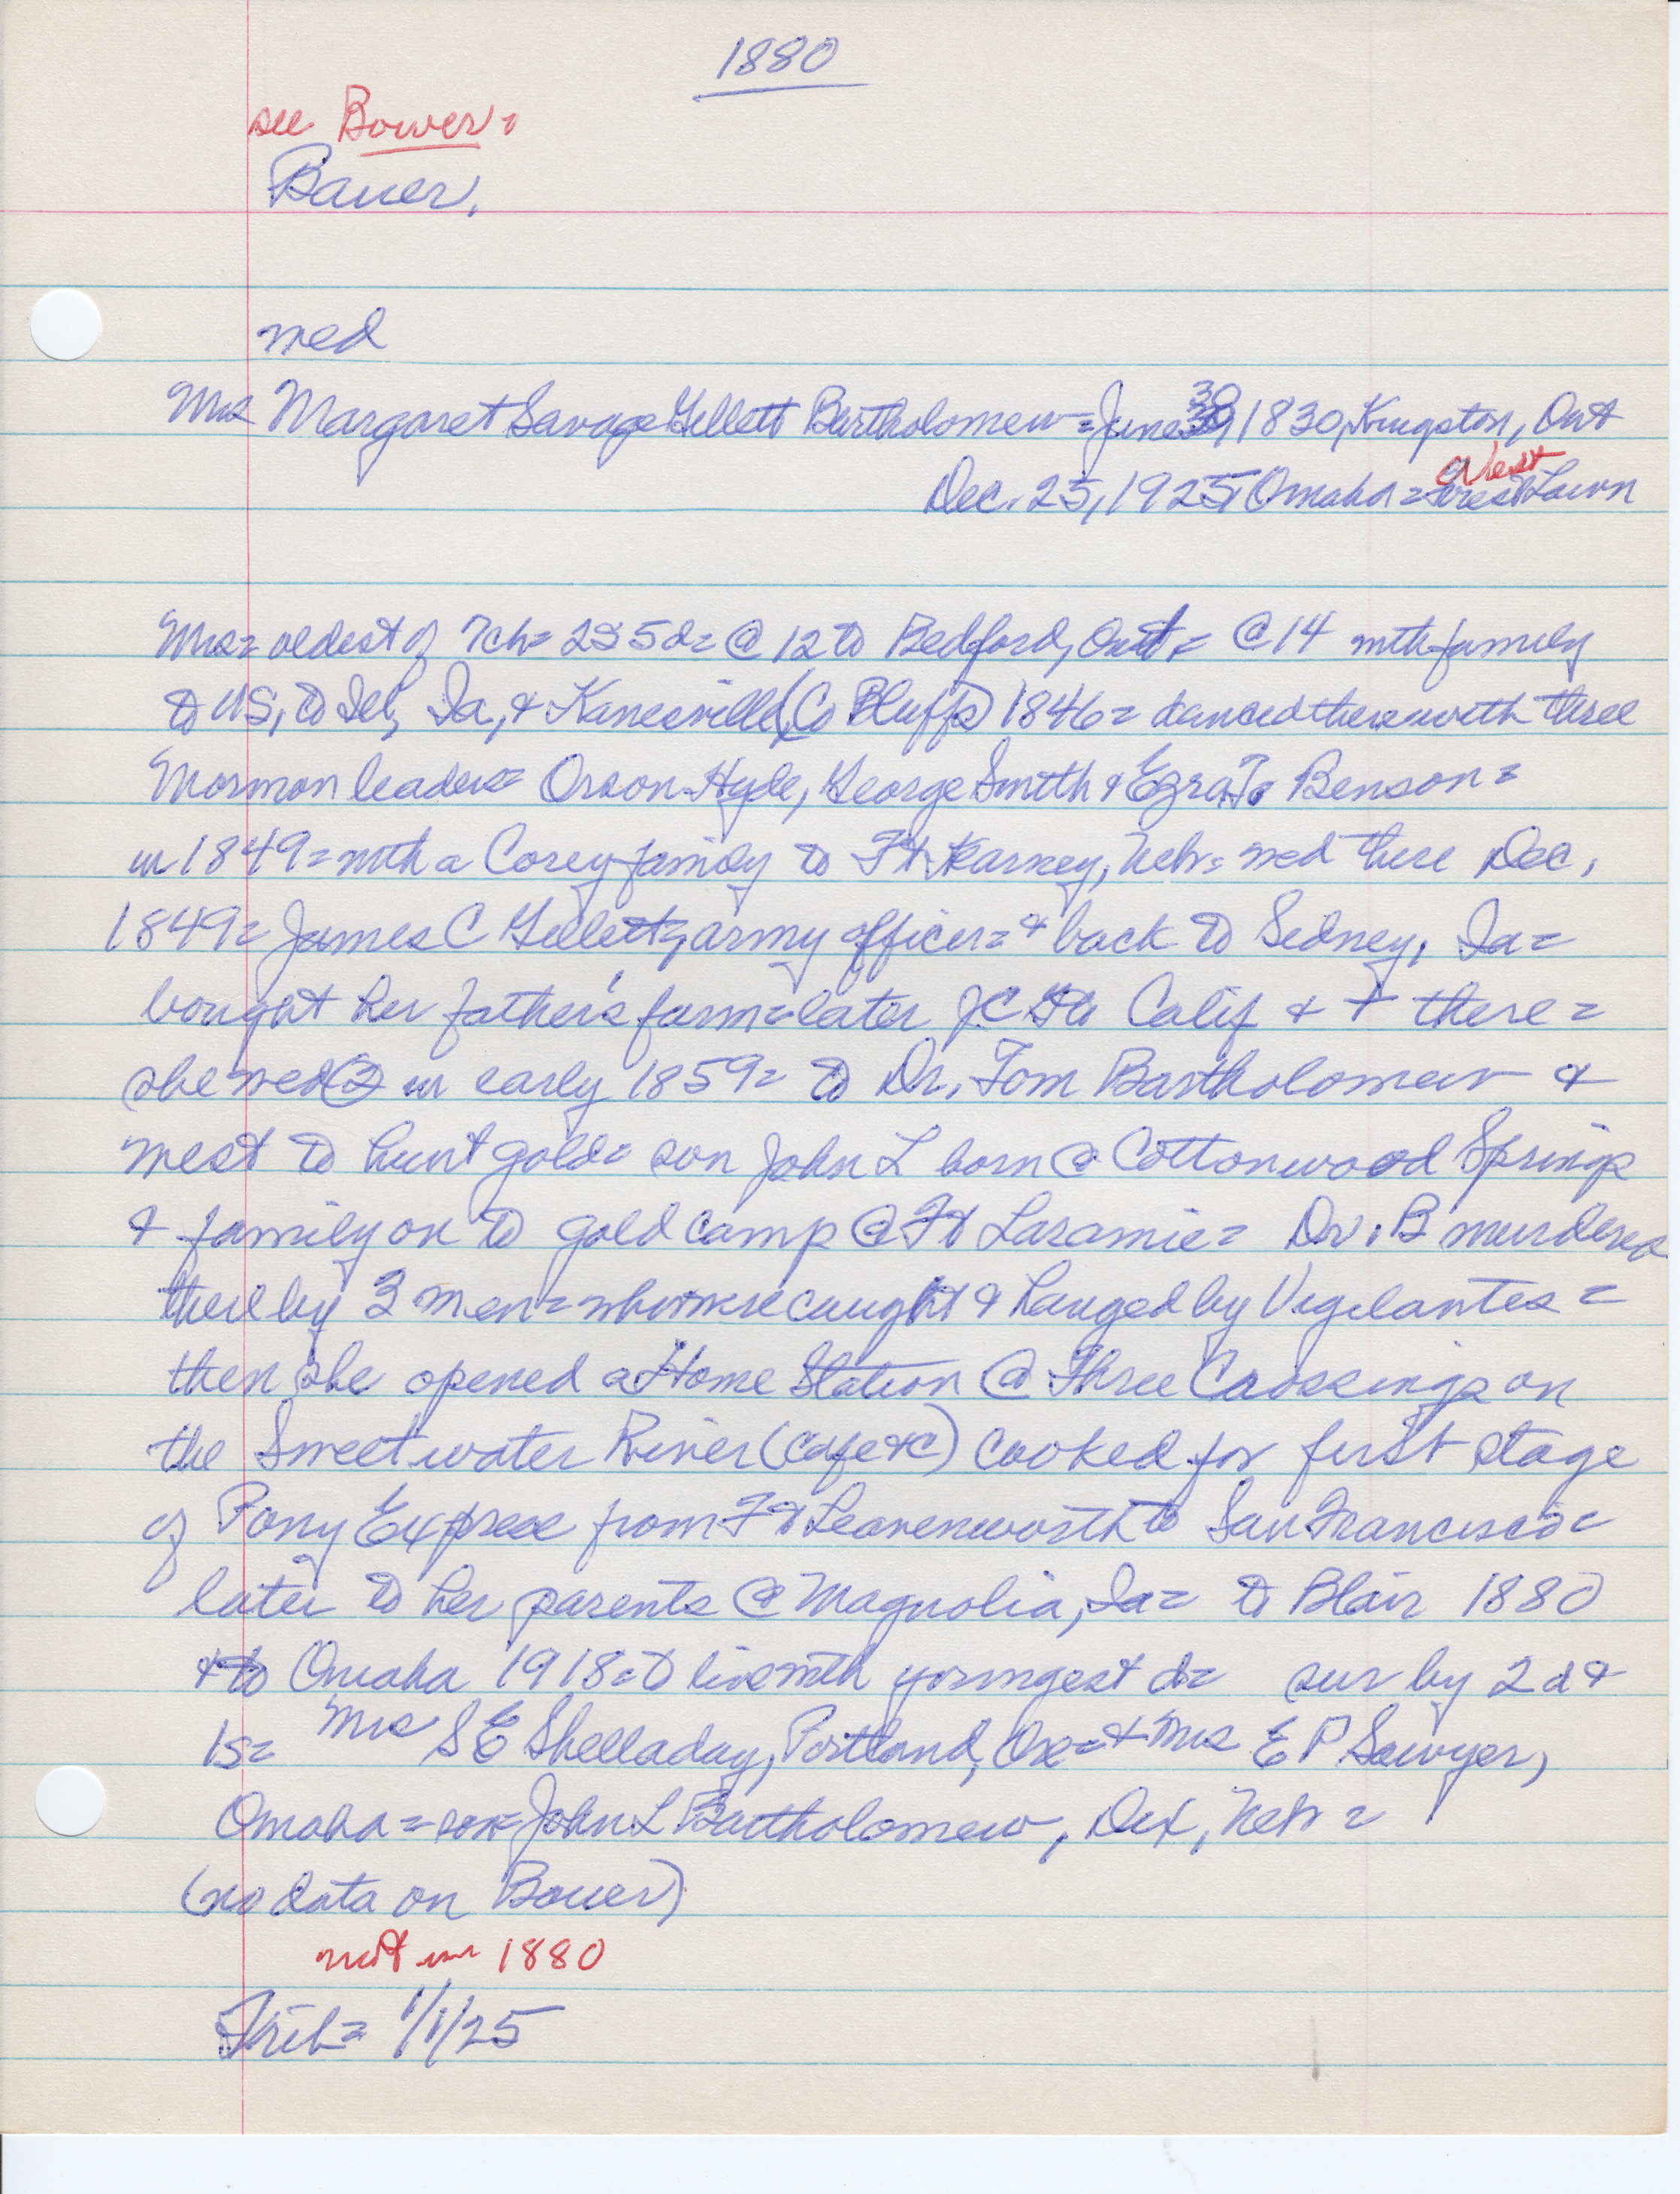 1880
see Bower=
Bauer.
med
Mrs Margaret Savage Gillett Bartholomew = June 30, 1830, Kingston, Ont
West
Dec. 25, 1925, Omaha = Forest Lawn
Mrs = oldest of 7ch= 2S 5d= @ 12 to Bedford, Ont, = @ 14 with family
to US, to Ill, Ia, & Kanesville (Co Bluffs) 1846 = danced there with three
Mormon leaders= Orson Hyde, George Smith & Ezra T. Benson =
in 1849 = with a Corey family to Ft Karney, Neb= med there Dec,
1849 = James C Gillett, army officer = & back to Sidney, Ia =
bought her father's farm = later JC to Calif & + there =
she med ② in early 1859 = to Dr. Tom Bartholomew &
west to hunt gold = son John L born @ Cottonwood Springs
& family on to gold camp @ Ft Laramie = Dr. B murdered
there by 3 men = who were caught & hanged by Vigilantes =
then she opened a Home Station @ Three Crossings on
the Sweetwater River (cafe &c) cooked for first stage
of Pony Express from Ft Leavenworth to San Francisco =
later to her parents @ Magnolia, Ia = to Blair 1880
& to Omaha 1918 = to live with youngest d = sur by 2 d &
1s = Mrs S E Shelladay, Portland, Ore = & Mrs E P Sawyer,
Omaha = son = John L Bartholomew, Dix, Neb =
(no data on Bauer)
not in 1880
Trib = 1/1/25